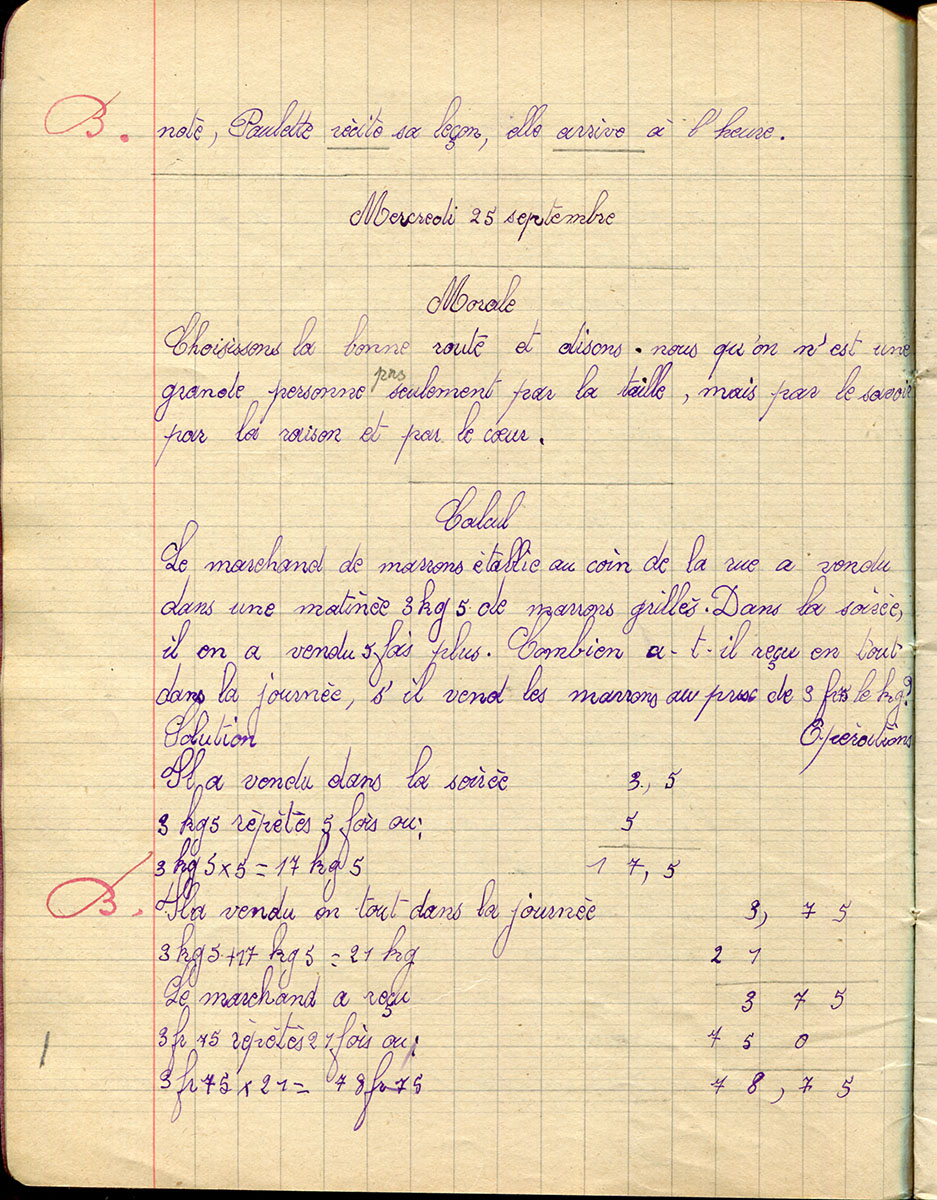 B.
note, Paulette récite sa leçon, elle arrive à l'heure.
Mercredi 25 septembre
Morale
Choisissons la bonne route et disons-nous qu'on n'est une
grande personne pas seulement par la taille, mais par le savoir
par la raison et par le cœur.
Calcul
Le marchand de marrons établie au coin de la rue a vendu
dans une matinée 3 kg 5 de marrons grillés. Dans la soirée,
il en a vendu 5 fois plus. Combien a-t-il reçu en tout
dans la journée, s'il vend les marrons au prix de 3 fr 75 le kg?
Solution Opérations
Il a vendu dans la soirée 3, 5
3 kg 5 répétés 5 fois ou: 5
3 kg 5 x 5 = 17 kg 5 1 7, 5
B. Il a vendu en tout dans la journée 3, 7 5
3 kg 5 + 17 kg 5 = 21 kg 2 1
Le marchand a reçu 3 7 5
3 fr 75 répétés 21 fois ou: 7 5 0
3 fr 75 x 21 = 78 fr 75 7 8, 7 5